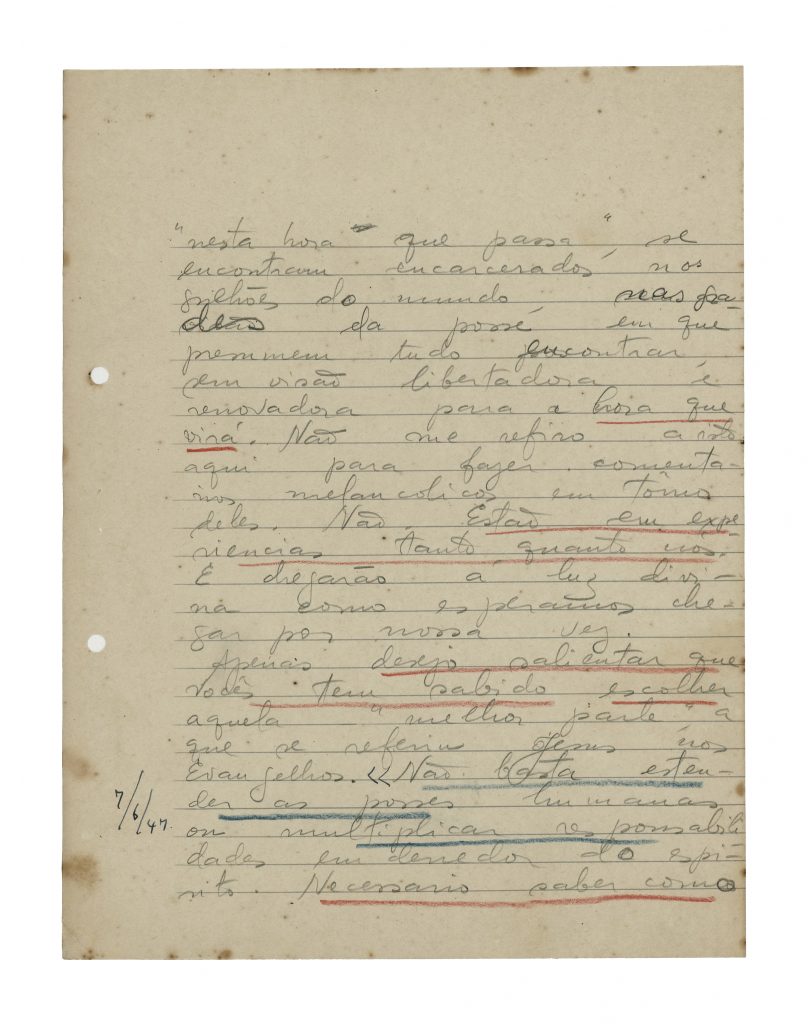 "nesta hora que passa", se
encontram encarcerados nos
grilhões do mundo nas gra-
des da posse em que
presumem tudo encontrar,
sem visão libertadora e
renovadora para a hora que
virá. Não me refiro a isto
aqui para fazer comenta-
rios melancolicos em tôrno
deles. Não. Estão em expe-
riencias tanto quanto nós.
E chegarão á luz divi-
na como esperamos che-
gar por nossa vez.
Apenas desejo salientar que
vocês tem sabido escolher
aquela "melhor parte" a
que se referiu Jesus nos
Evangelhos. << Não basta esten-
der as posses humanas
7/6/47.
ou multiplicar responsabili
dades em derredor do espi-
rito. Necessario saber como